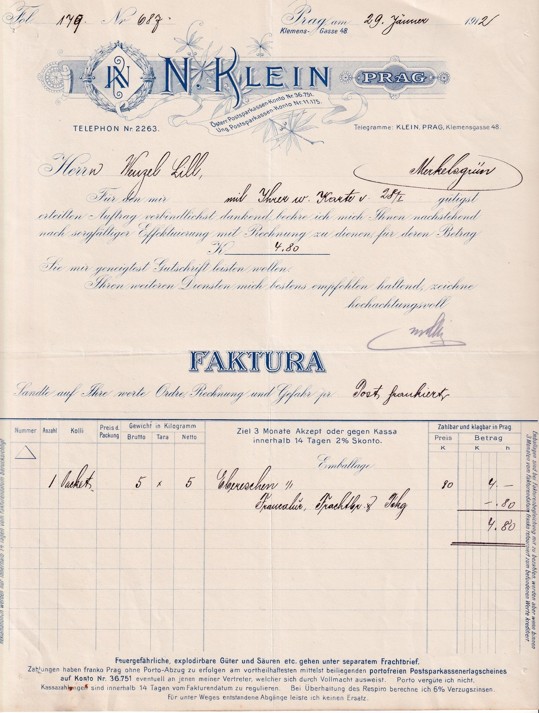 Fol 179 No 687. Prag, am 29. Jänner 1912
Klemens-Gasse 48
N. KLEIN
PRAG
Österr. Postsparkassen-Konto Nr. 36.751.
Ung. Postsparkassen-Konto Nr. 11.175.
TELEPHON Nr. 2263.
Telegramme: KLEIN, PRAG, Klemensgasse 48.
Herrn Wenzel Lill, Merkelsgrün
Für den mir mit Ihrer w. Karte v. 28/I gütigst
erteilten Auftrag verbindlichst dankend, beehre ich mich Ihnen nachstehend
nach sorgfältiger Effektuierung mit Rechnung zu dienen, für deren Betrag
K 4.80
Sie mir geneigtest Gutschrift leisten wollen.
Ihren weiteren Diensten mich bestens empfohlen haltend, zeichne
hochachtungsvoll
FAKTURA
Sandte auf Ihre werte Ordre, Rechnung und Gefahr pr. Post, frankiert,
Nummer Anzahl Kolli Preis d. Packung Gewicht in Kilogramm Brutto Tara Netto
Ziel 3 Monate Akzept oder gegen Kassa
innerhalb 14 Tagen 2% Skonto.
Zahlbar und klagbar in Prag
Preis Betrag
K K h
Emballage
1 Packet 5 x 5 Ebereschen 80 4.—
Frachtbr. —.80
4.80
Feuergefährliche, explodirbare Güter und Säuren etc. gehen unter separatem Frachtbrief.
Zahlungen haben franko Prag ohne Porto-Abzug zu erfolgen am vortheilhaftesten mittelst beiliegenden portofreien Postsparkassenerlagscheines
auf Konto Nr. 36.751 eventuell an jenen meiner Vertreter, welcher sich durch Vollmacht ausweist. Porto vergüte ich nicht.
Kassazahlungen sind innerhalb 14 Tagen vom Fakturendatum zu regulieren. Bei Überhaltung des Respiro berechne ich 6% Verzugszinsen.
Für unser Weges entstandene Abgänge leiste ich keinen Ersatz.